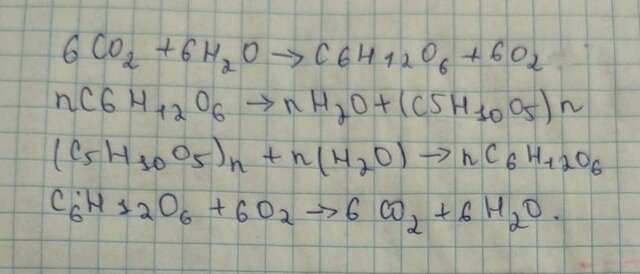 6CO₂ + 6H₂O → C6H12O₆ + 6O₂.
nC6H₁₂O₆ → nH₂O + (C5H₁₀O5)n
(C5H₁₀O5)n + n(H₂O) → nC₆H₁₂O₆
C₆H12O₆ + 6O₂ → 6CO₂ + 6H₂O.